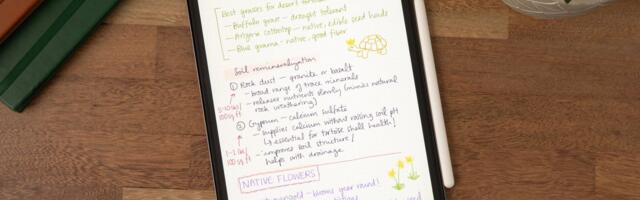 Best grasses for desert tortoise
— Buffalo grass - drought tolerant
— Arizona cottontop - native, edible seed heads
— Blue grama - native, good fiber
Soil remineralization
① Rock dust — granite or basalt
- broad range of trace minerals
- releases nutrients slowly (mimics natural
rock weathering)
5-10 lbs/
100 sq ft
② Gypsum - calcium sulfate
- supplies calcium without raising soil pH
↳ essential for tortoise shell health!
- improves soil structure /
helps with drainage.
1-2 lbs/
100 sq ft
NATIVE FLOWERS
marigold - blooms year round!